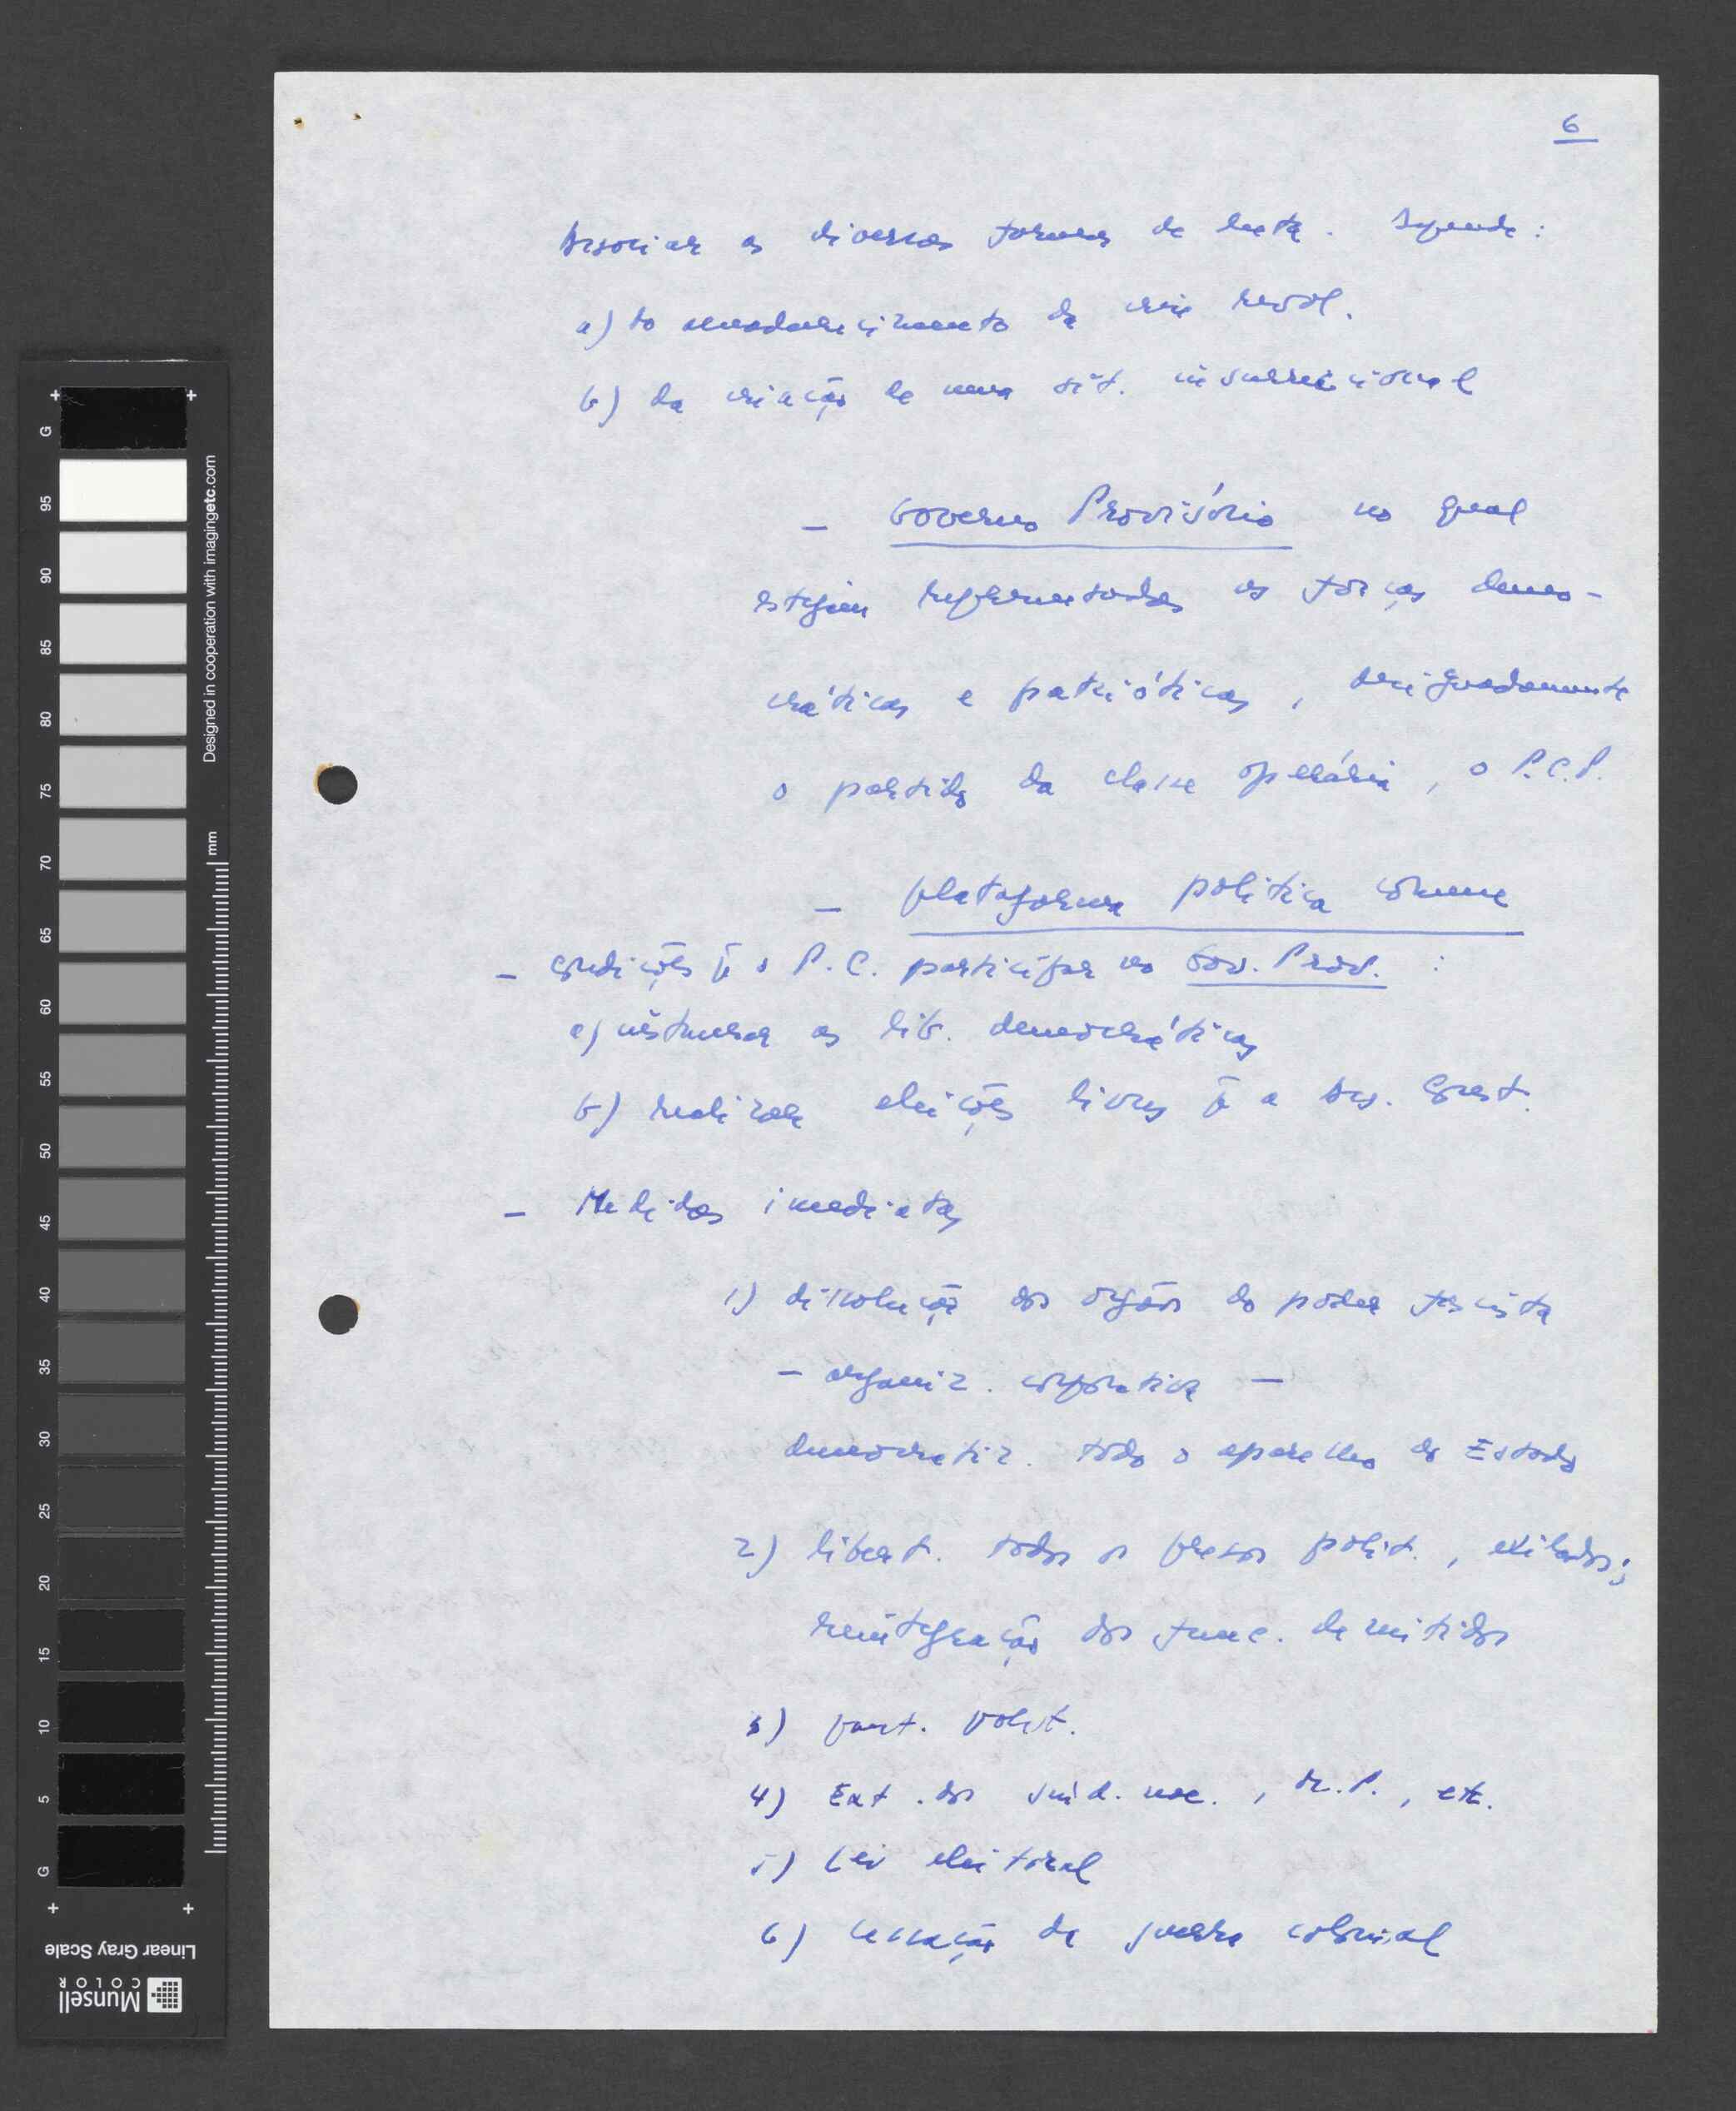 6
Associar as diversas formas de luta. Depende:
a) do amadurecimento da crise revol.
b) da criação de uma sit. insurreicional
— Governo Provisório no qual
estejam representadas as forças demo-
cráticas e patrióticas, designadamente
o partido da classe operária, o P.C.P.
— plataforma politica comum
— condições p̃ o P.C. participar no Gov. Prov. :
a) instaurar as lib. democráticas
b) realizar eleições livres p̃ a Ass. Const.
— Medidas imediatas
1) dissolução dos orgãos do poder fascista
— organiz. corporativa —
democratiz. todo o aparelho do Estado
2) libert. todos os presos polit., exilados;
reintegração dos func. demitidos
3) part. polit.
4) Ext. dos sind. nac., , etc.
5) Lei eleitoral
6) cessação da guerra colonial
G
95
90
85
80
75
70
65
60
55
50
45
40
35
30
25
20
15
10
5
G
mm
Designed in cooperation with imagingetc.com
Linear Gray Scale
Munsell
COLOR